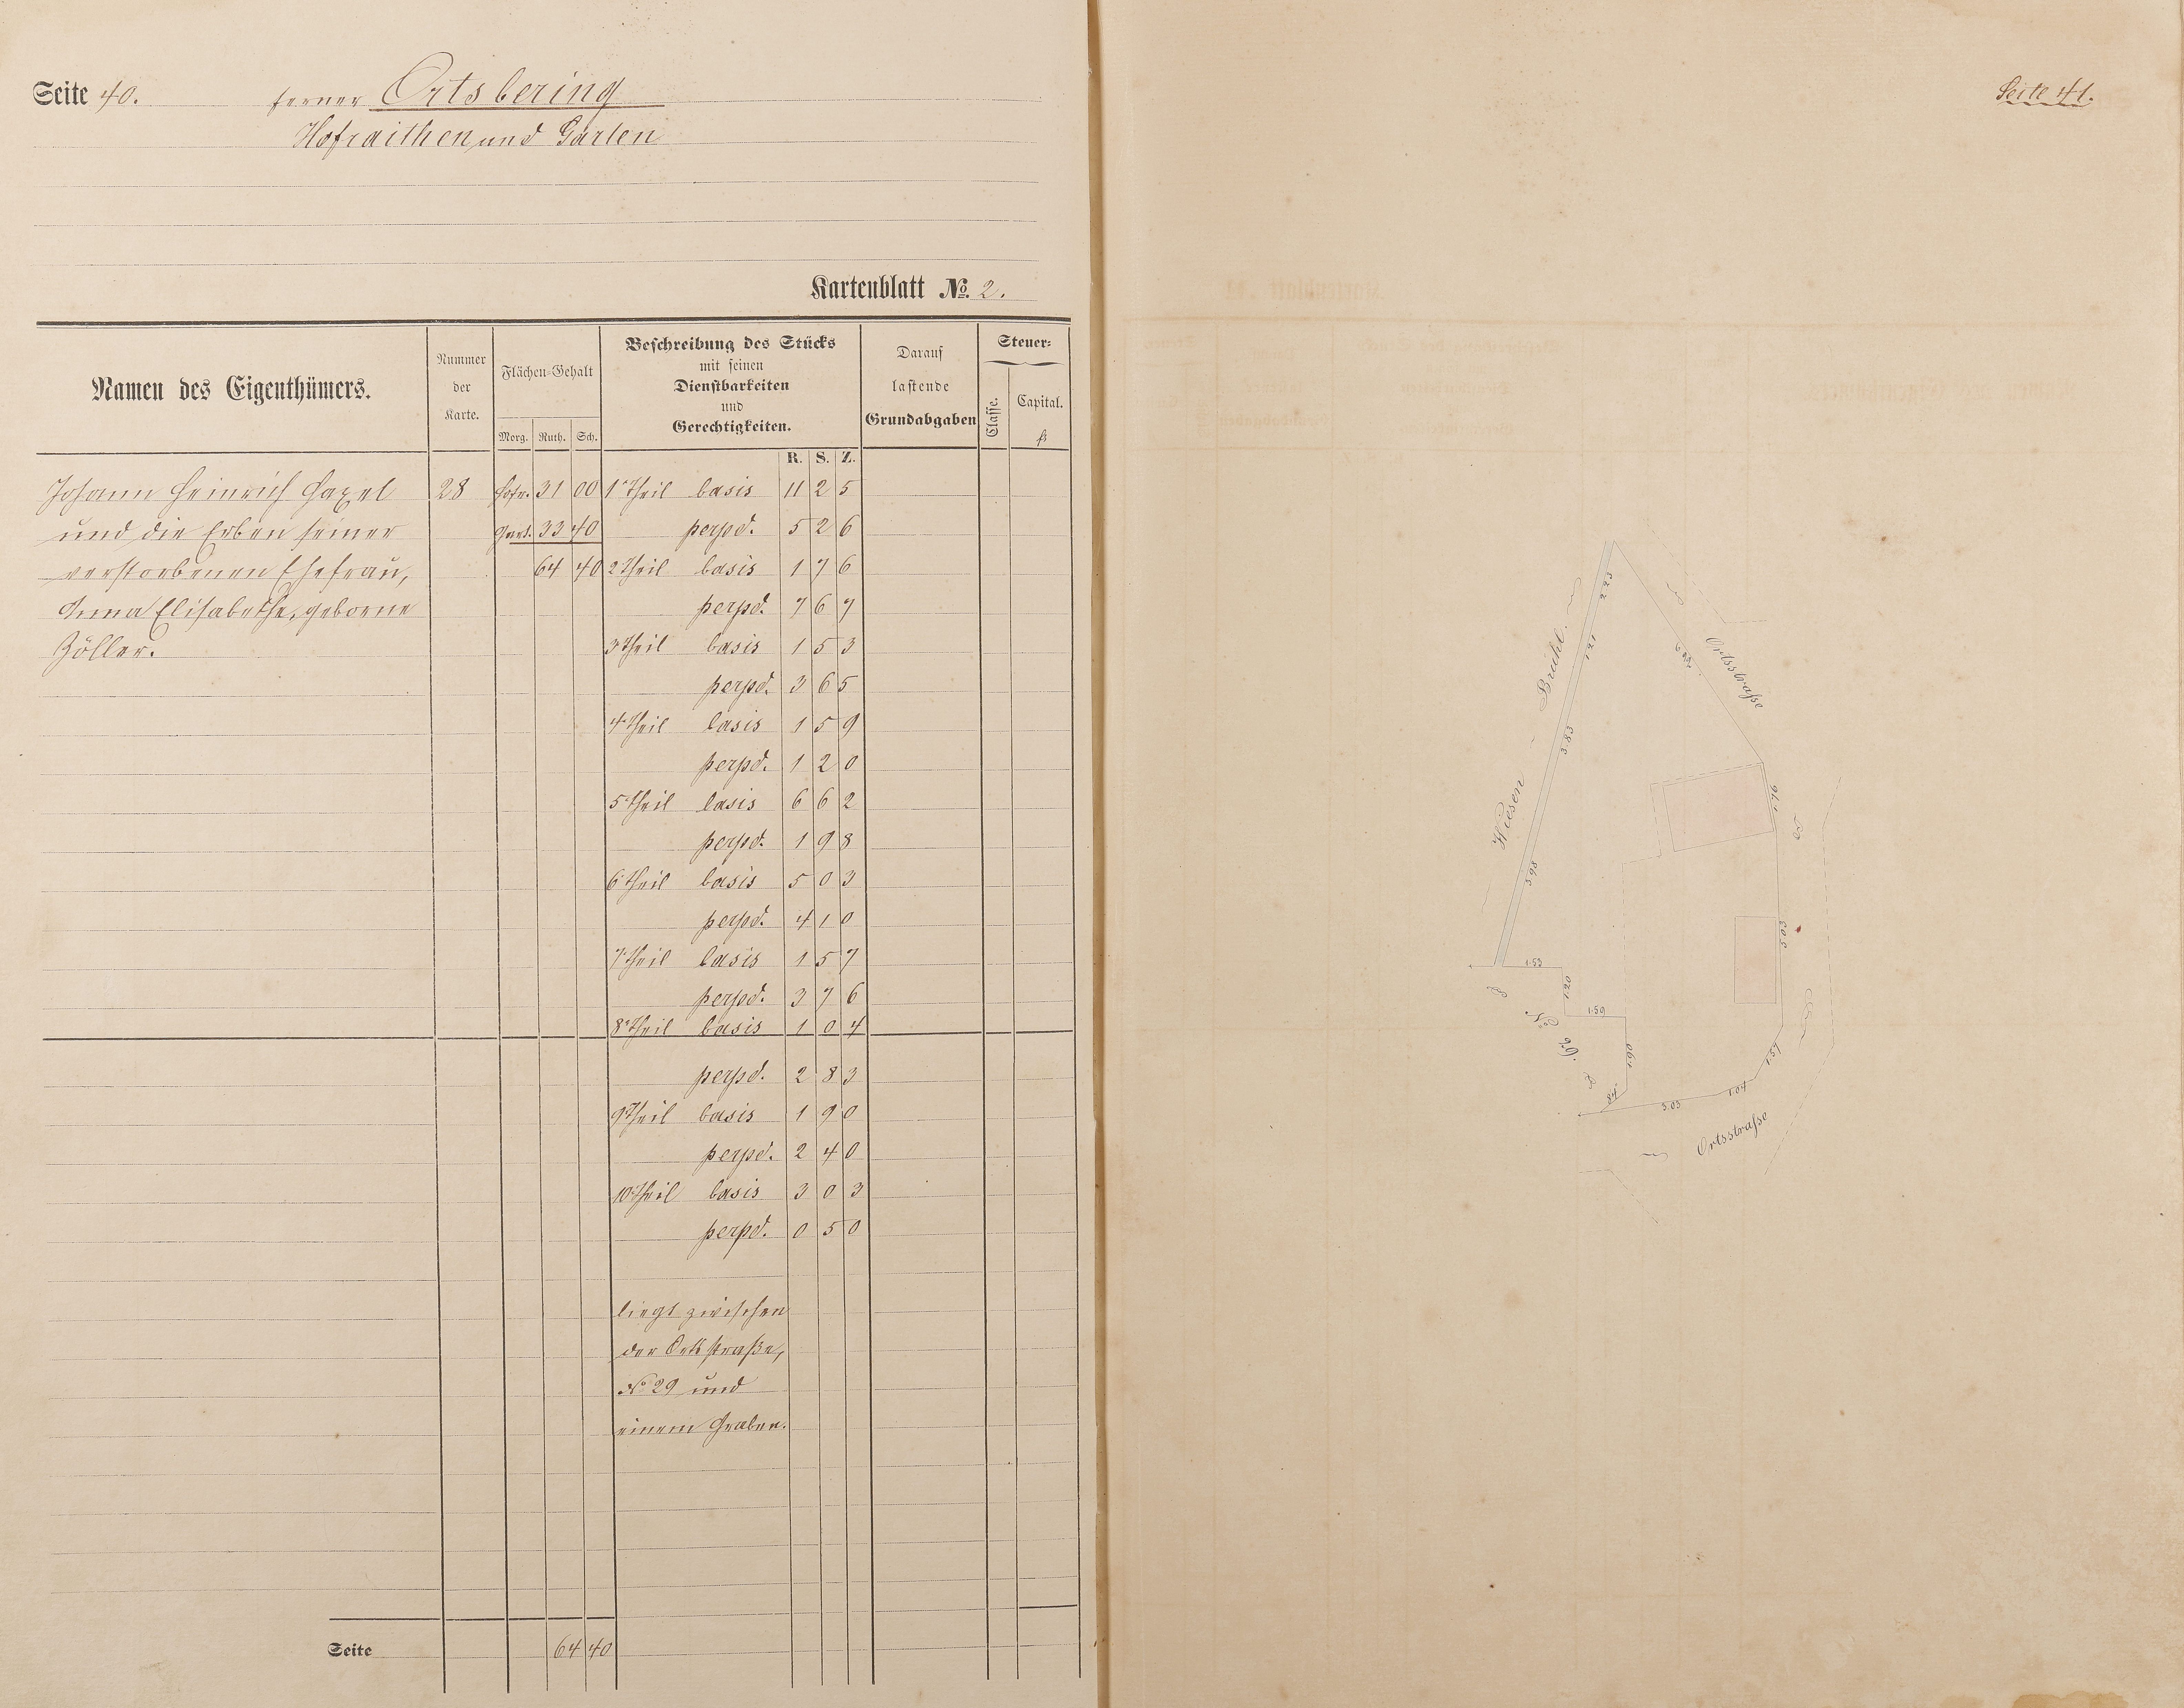 Seite 40. ferner Ortsbering
Hofraithen und Gärten
Kartenblatt No. 2.
Namen des Eigenthümers.
Nummer der Karte.
Flächen-Gehalt
Morg. Ruth. Sch.
Beschreibung des Stücks
mit seinen
Dienstbarkeiten
und
Gerechtigkeiten.
Darauf
lastende
Grundabgaben
Steuer-
Classe.
Capital.
fl
R. S. Z.
Johann Heinrich 28 Hofr. 31 00 1r Theil basis 11 2 5
und die Erben seiner Gart. 33 40 perpd. 5 2 6
verstorbenen Ehefrau, 64 40 2 Theil basis 1 7 6
Anna Elisabethe, geborne perpd. 7 6 7
Zöller. 3 Theil basis 1 5 3
perpd. 3 6 5
4 Theil basis 1 5 9
perpd. 1 2 0
5 Theil basis 6 6 2
perpd. 1 9 8
6 Theil basis 5 0 3
perpd. 4 1 0
7 Theil basis 1 5 7
perpd. 3 7 6
8 Theil basis 1 0 4
perpd. 2 8 3
9 Theil basis 1 9 0
perpd. 2 4 0
10 Theil basis 3 0 3
perpd. 0 5 0
liegt zwischen
der Ortsstraße,
No 29 und
einem Graben.
Seite 64 40
Seite 41.
Wiesen Brühl.
2.23
1.21
3.83
3.98
Ortsstrafse
1.76
5.03
1.53
1.20
1.59
1.90
84
3.03
1.04
1.57
Ortsstrafse